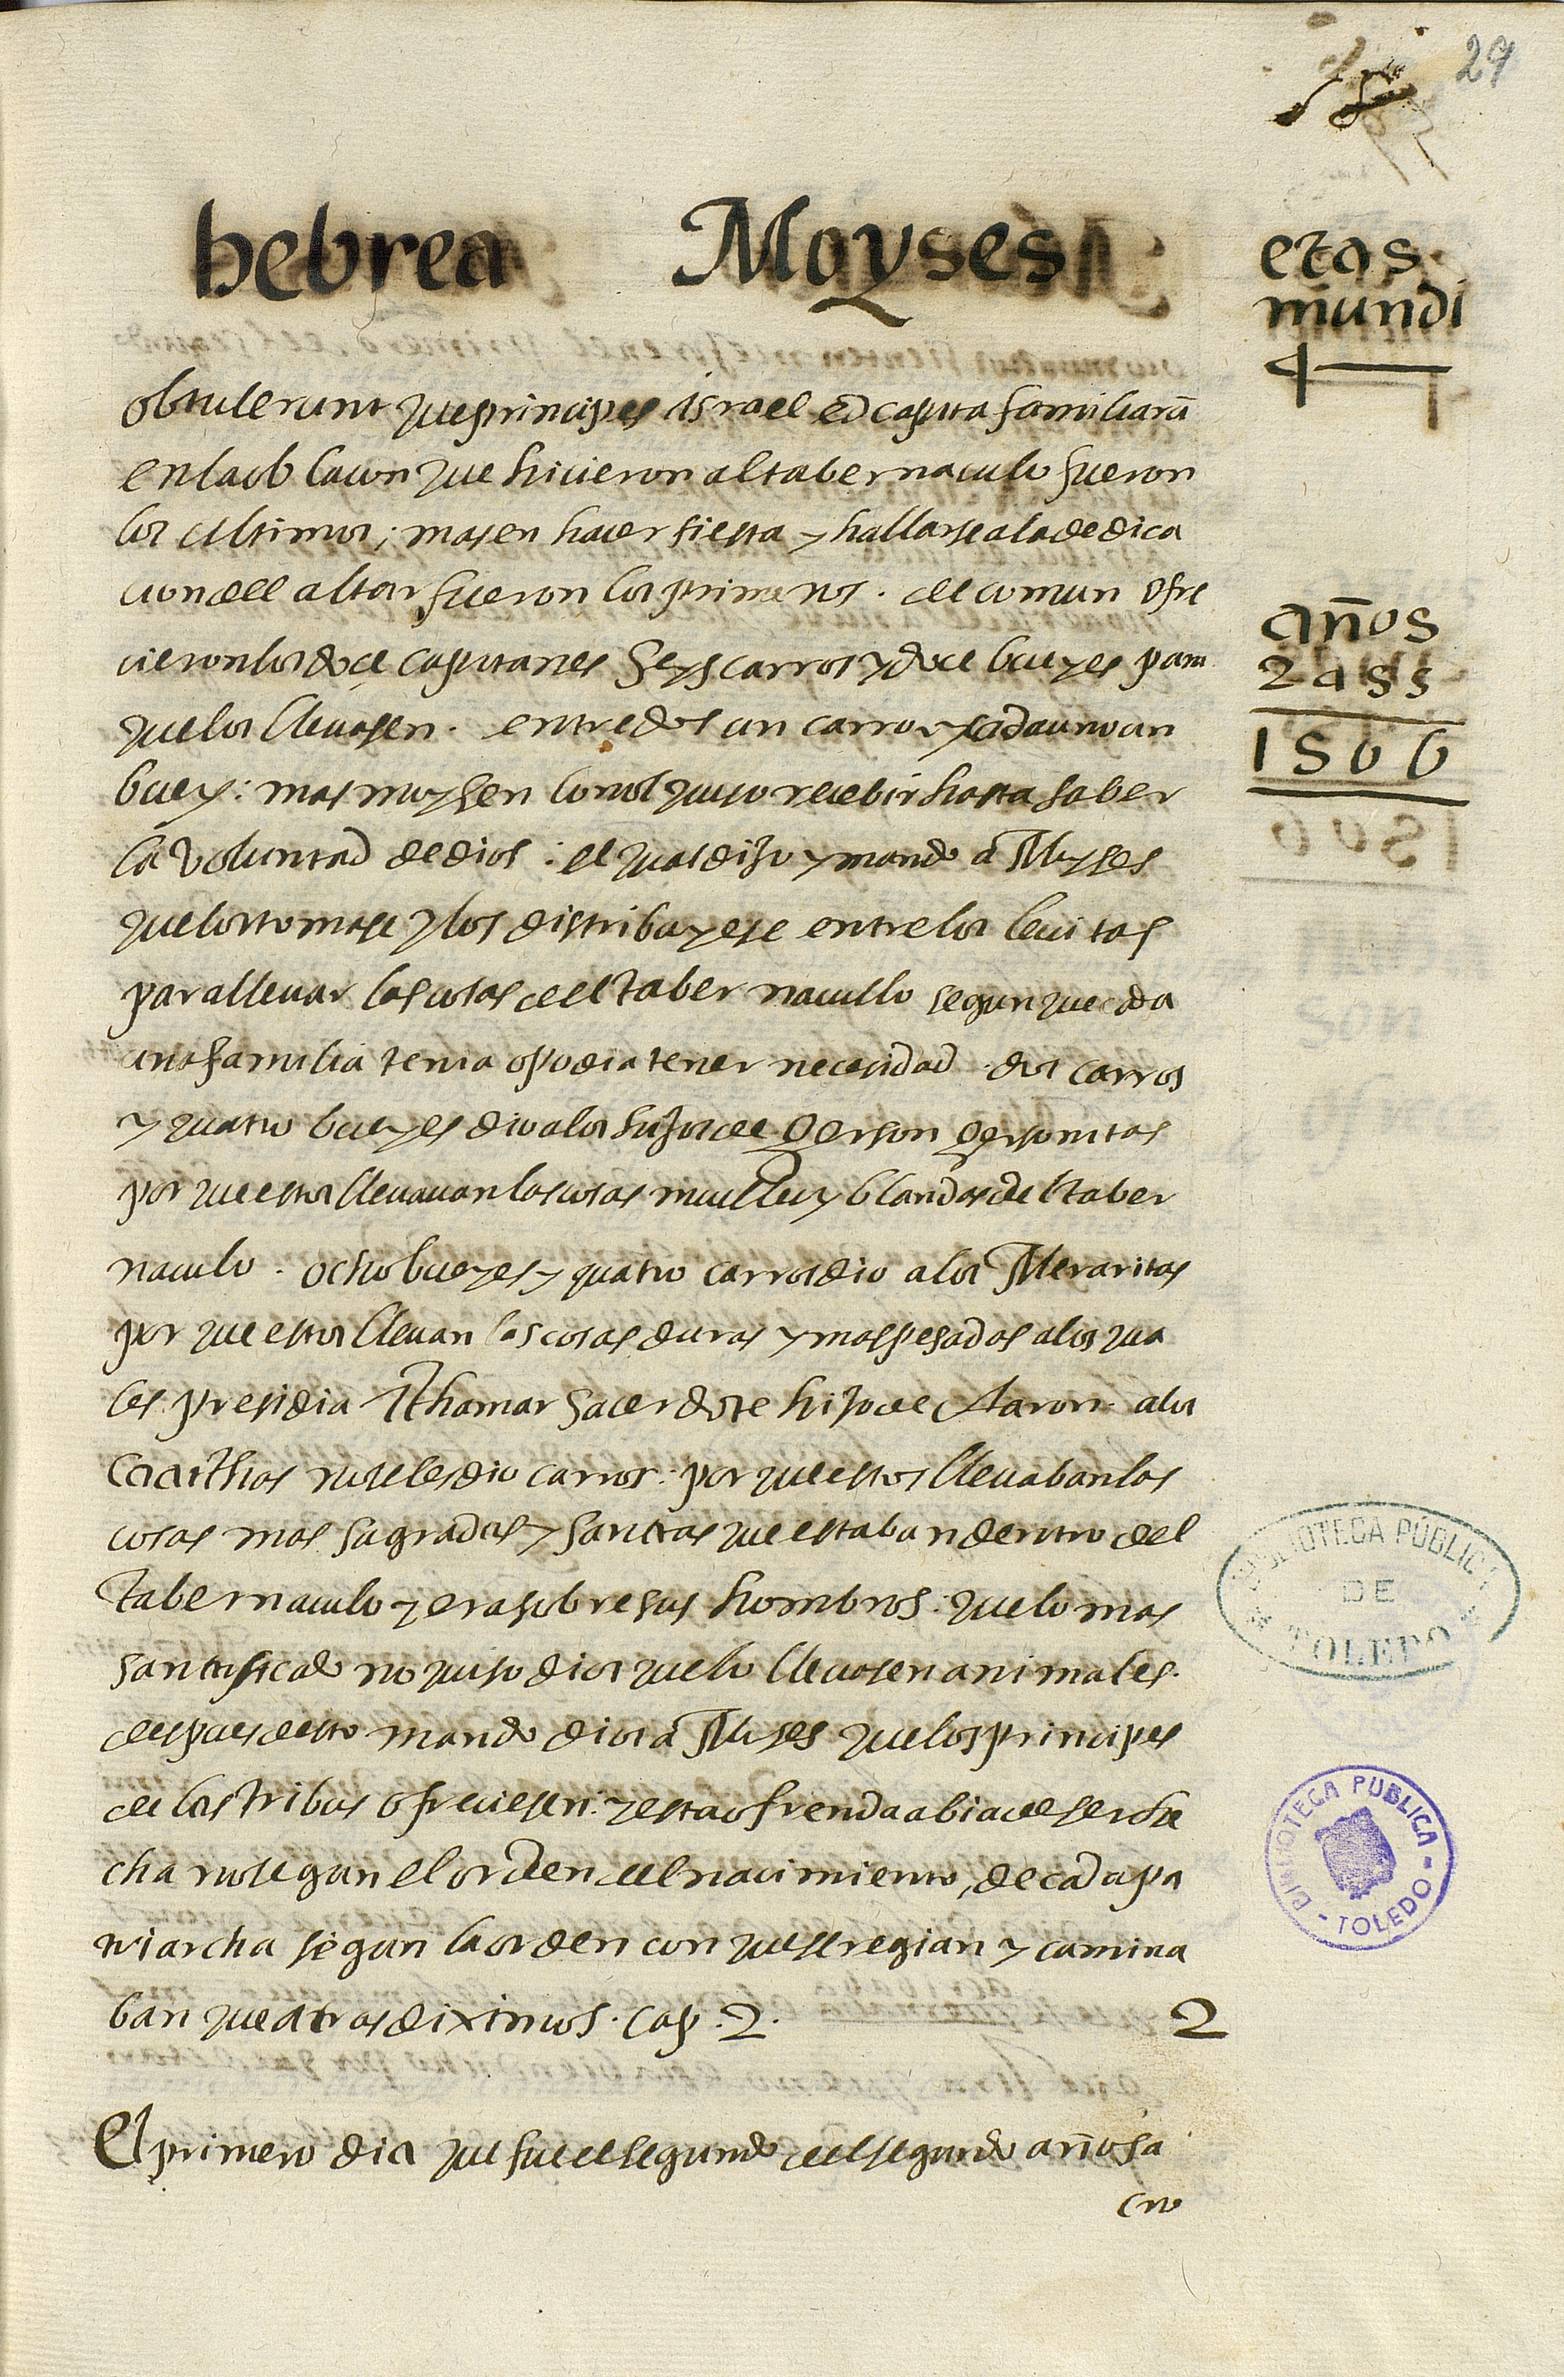 29
hebrea Moyses
etas
mundi
4
obtulerunt que principes israel et capita familiarū
en la oblacion que hicieron al tabernaculo fueron
los ultimos; mas en hacer fiesta y hallarse a la dedica
cion del altar fueron los primeros. de comun ofre
cieron los doce capitanes seys carros y doce bueyes para
que los llevasen. entre dos un carro y cada uno un
buey: mas moysen no los quiso recebir hasta saber
la voluntad de dios: el qual dijo y mando a Moyses
que los tomase y los distribuyese entre los levitas
para llevar las cosas del tabernacullo segun que cada
una familia tenia o podia tener necesidad. dos carros
y quatro bueyes dio a los hijos de Gerson gersonitas
por que estos llevavan las cosas muelles y blandas del taber
naculo. ocho bueyes y quatro carros dio a los Meraritas
por que estos llevan las cosas duras y mas pesadas a los qua
les presidia Ithamar sacerdote hijo de Aaron. a los
Caaithas no se les dio carros: por que estos llevaban las
cosas mas sagradas y sanctas que estaban dentro del
tabernaculo y era sobre sus hombros: que lo mas
sanctificado no quiso dios que lo llevasen animales.
despues desto mando dios a Moyses que los principes
de las tribus ofreciesen: y esta ofrenda abia de ser he
cha no segun el orden del nacimiento, de cada pa
triarcha segun la orden con que se regian y camina
ban que atras diximos. Cap. 2. 2
El primero dia que fue el segundo del segundo año sa
cro
años
2455
1506
BIBLIOTECA PÚBLICA
DE
TOLEDO
BIBLIOTECA PUBLICA
- TOLEDO -